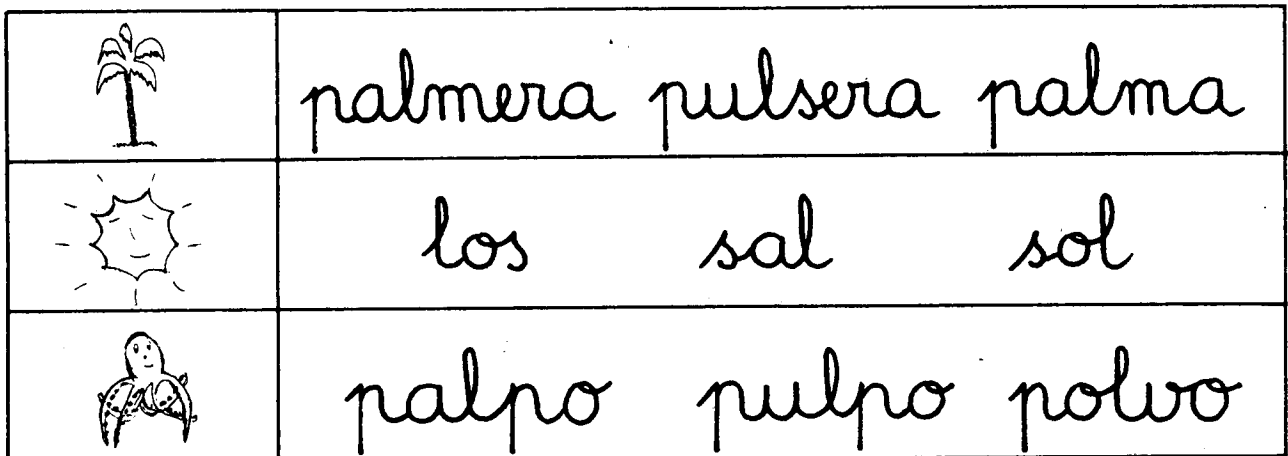 palmera pulsera palma
los sal sol
palpo pulpo polvo